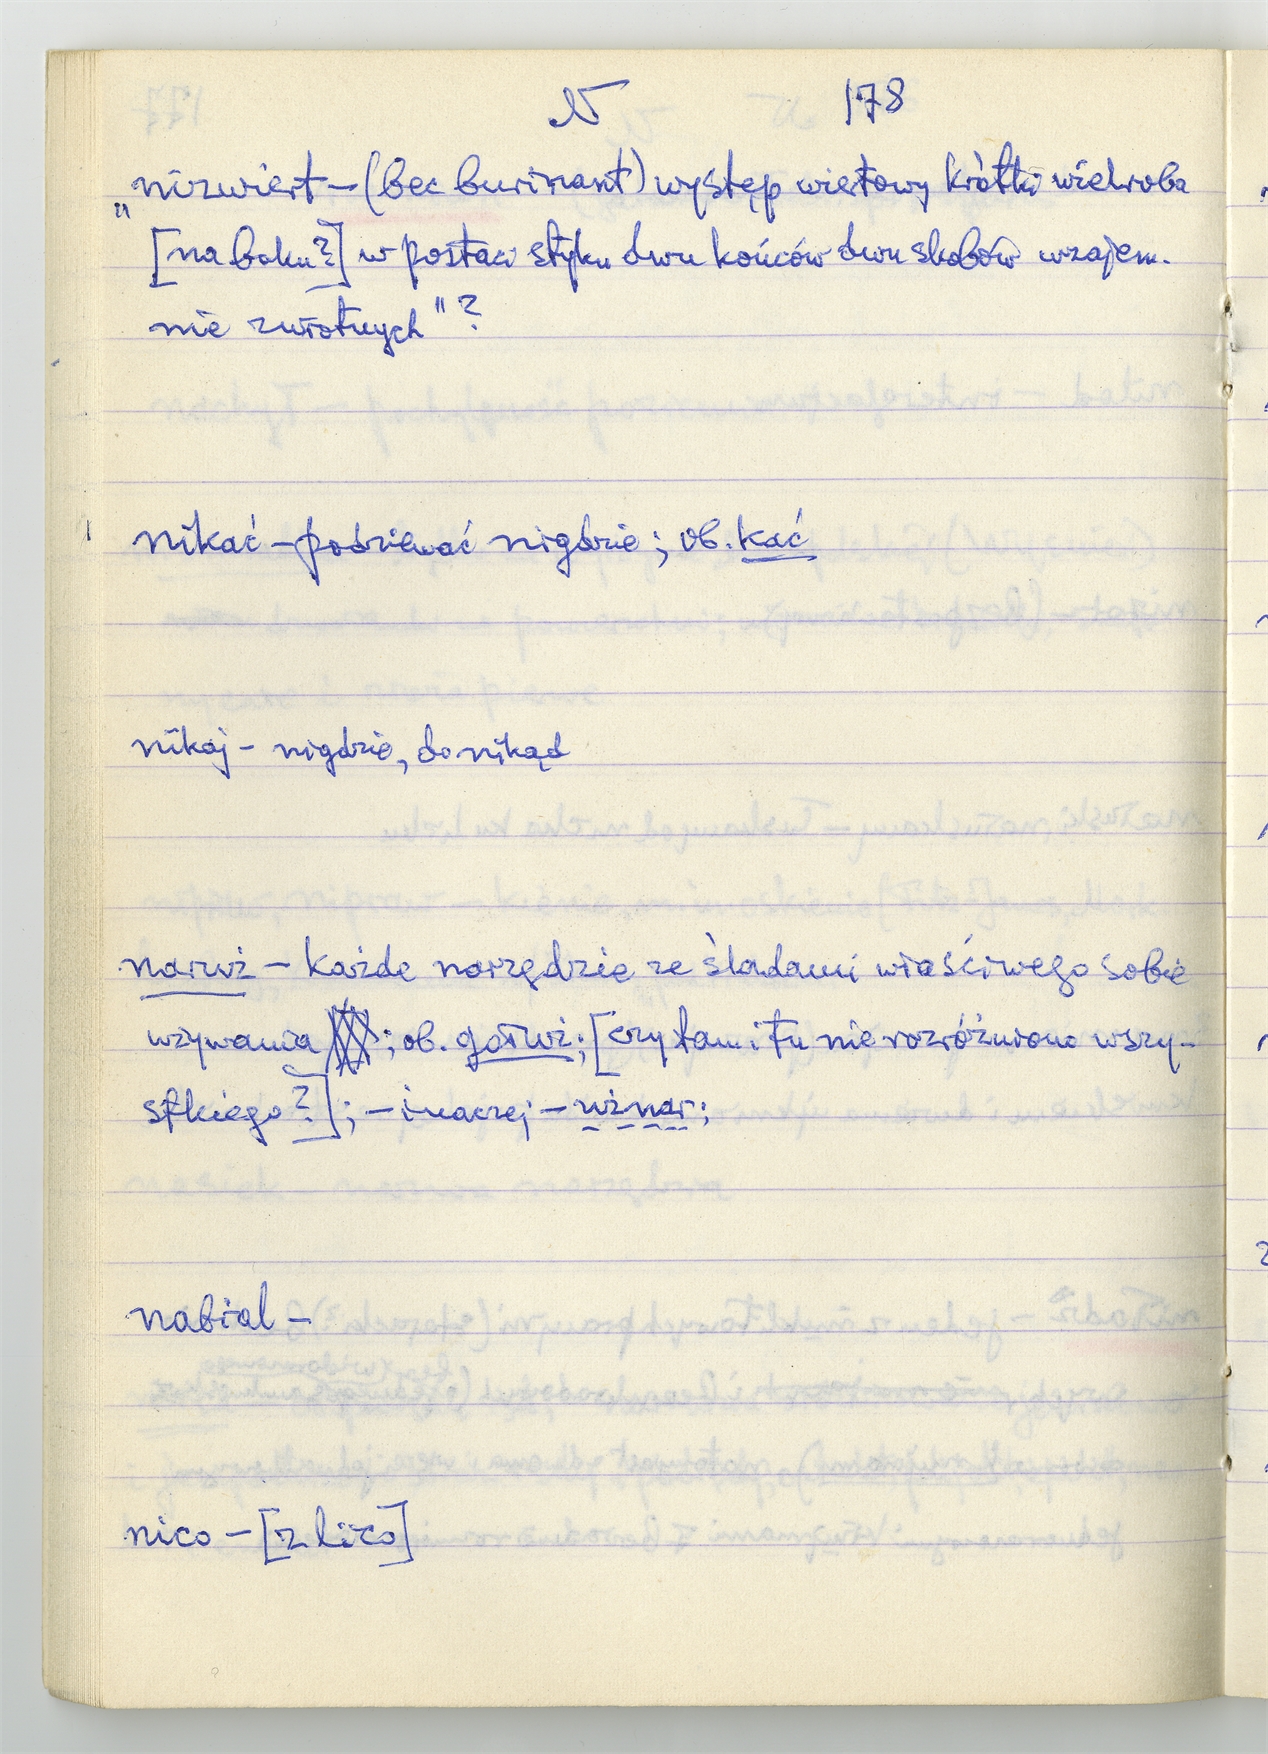 N 178
„nizwiert – (bec burinant) występ wiertowy krótki wielroba
[na boku?] w postaci styku dwu końców dwu skobów wzajem-
nie zwrotnych" ?
nikać – podziewać nigdzie; ob. kać
nikaj – nigdzie, donikąd
narzuż – każde narzędzie ze śladami właściwego sobie
wzywania ; ob. gołuż; [czy tam i tu nie rozróżniono wszy-
stkiego?]; – inaczej – użnar;
nabial –
nico – [z lico]